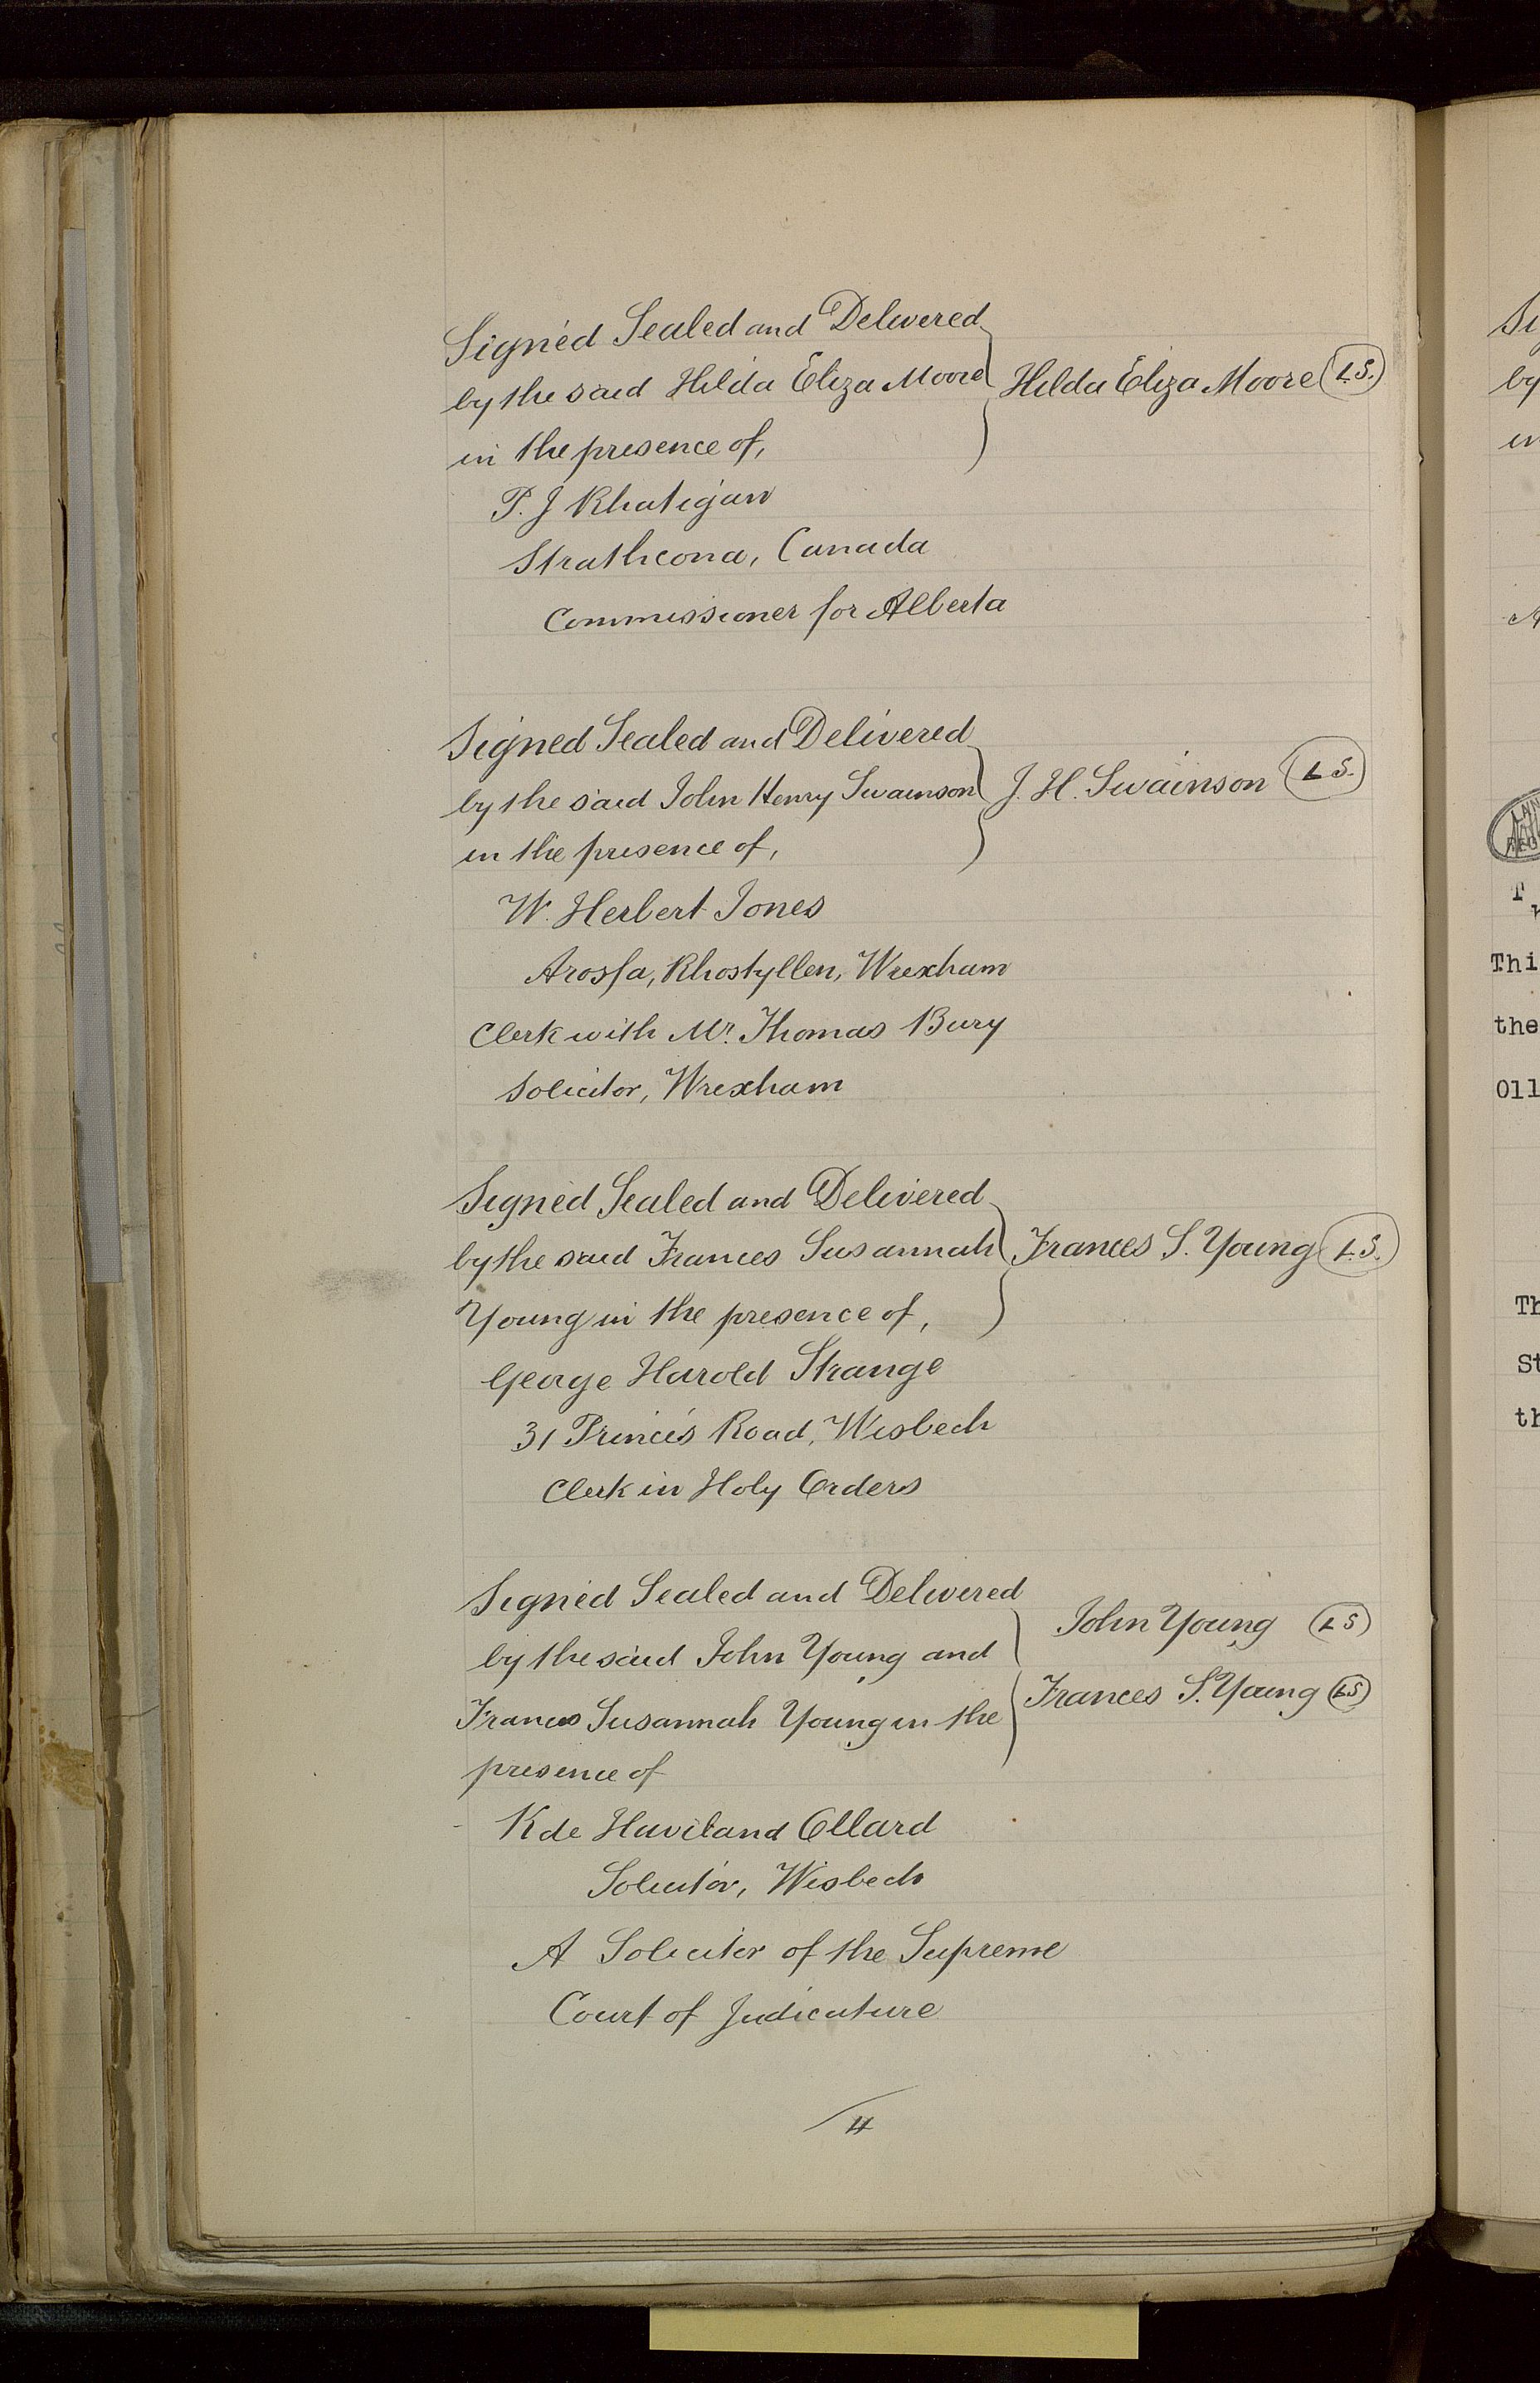 Signed Sealed and Delivered
by the said Hilda Eliza Moore
in the presence of,
Hilda Eliza Moore L.S.
P. J Rhatigan
Strathcona, Canada
Commissioner for Alberta
Signed Sealed and Delivered
by the said John Henry Swainson
in the presence of,
J. H. Swainson L S.
W. Herbert Jones
Arosfa, Rhostyllen, Wrexham
Clerk with Mr. Thomas Bury
Solicitor, Wrexham
Signed Sealed and Delivered
by the said Frances Susannah
Young in the presence of,
Frances S. Young L.S.
George Harold Strange
31 Prince's Road, Wisbech
Clerk in Holy Orders
Signed Sealed and Delivered
by the said John Young and
Frances Susannah Young in the
presence of
John Young L S
Frances S. Young LS
K de Haviland Ollard
Solicitor, Wisbech
A Solicitor of the Supreme
Court of Judicature
4
Si
by
in
Thi
the
Oll
Th
St
th